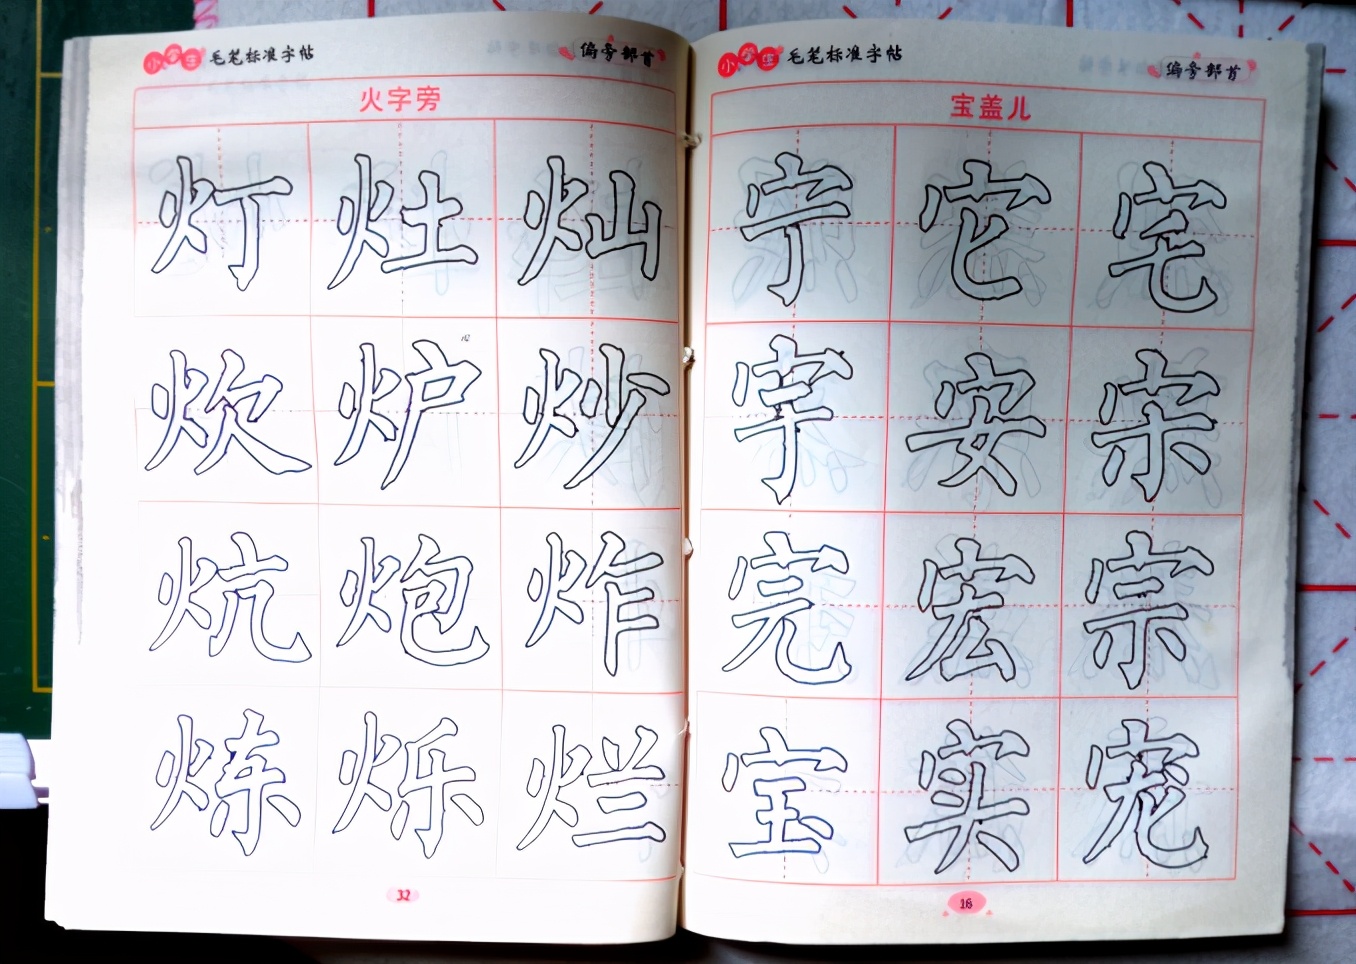 小学生 毛笔标准字帖 偏旁部首
火字旁
灯 灶 灿
炊 炉 炒
炕 炮 炸
炼 烁 烂
32
小学生 毛笔标准字帖 偏旁部首
宝盖儿
宁 它 宅
宇 安 宋
完 宏 宗
宝 实 宠
16